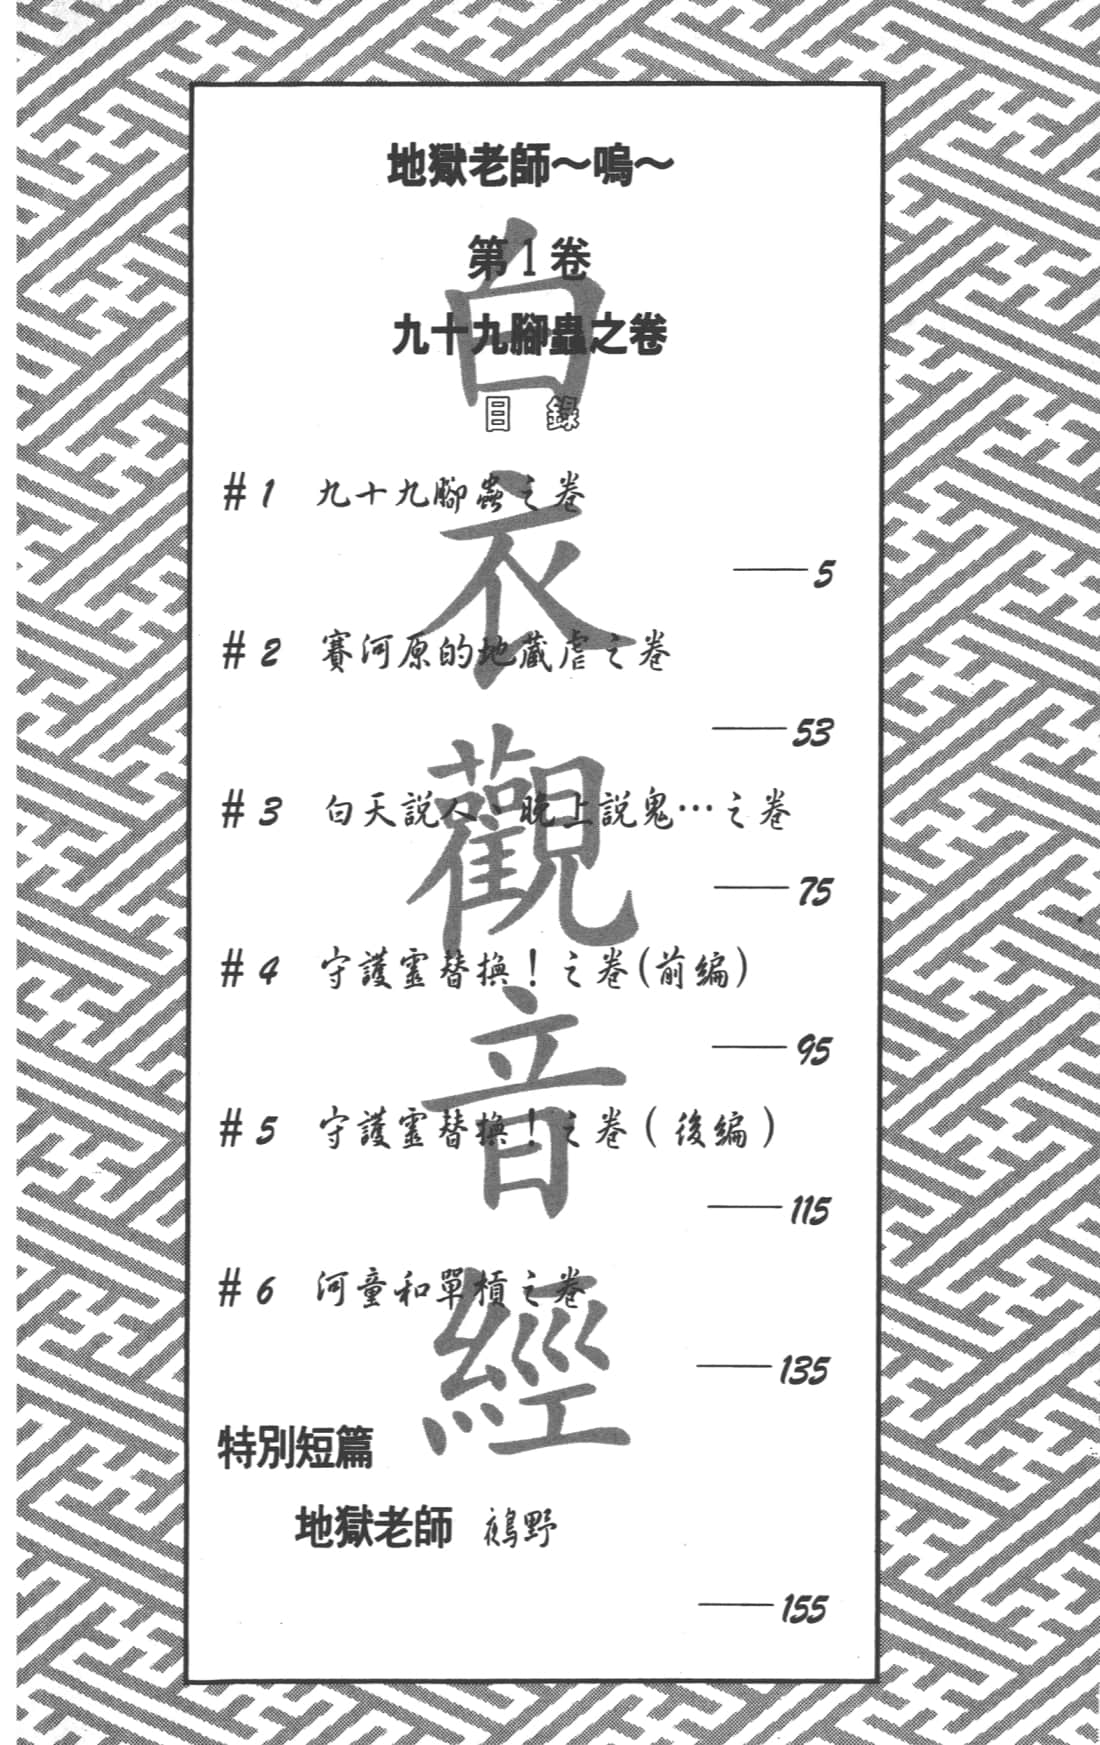 地獄老師～嗚～
第1卷
九十九腳蟲之卷
目錄
#1 九十九腳蟲之卷
5
#2 賽河原的地藏虐之卷
53
#3 白天說人、晚上說鬼…之卷
75
#4 守護靈替換！之卷(前編)
95
#5 守護靈替換！之卷(後編)
115
#6 河童和單槓之卷
135
特別短篇
地獄老師 鵺野
155
白衣觀音經